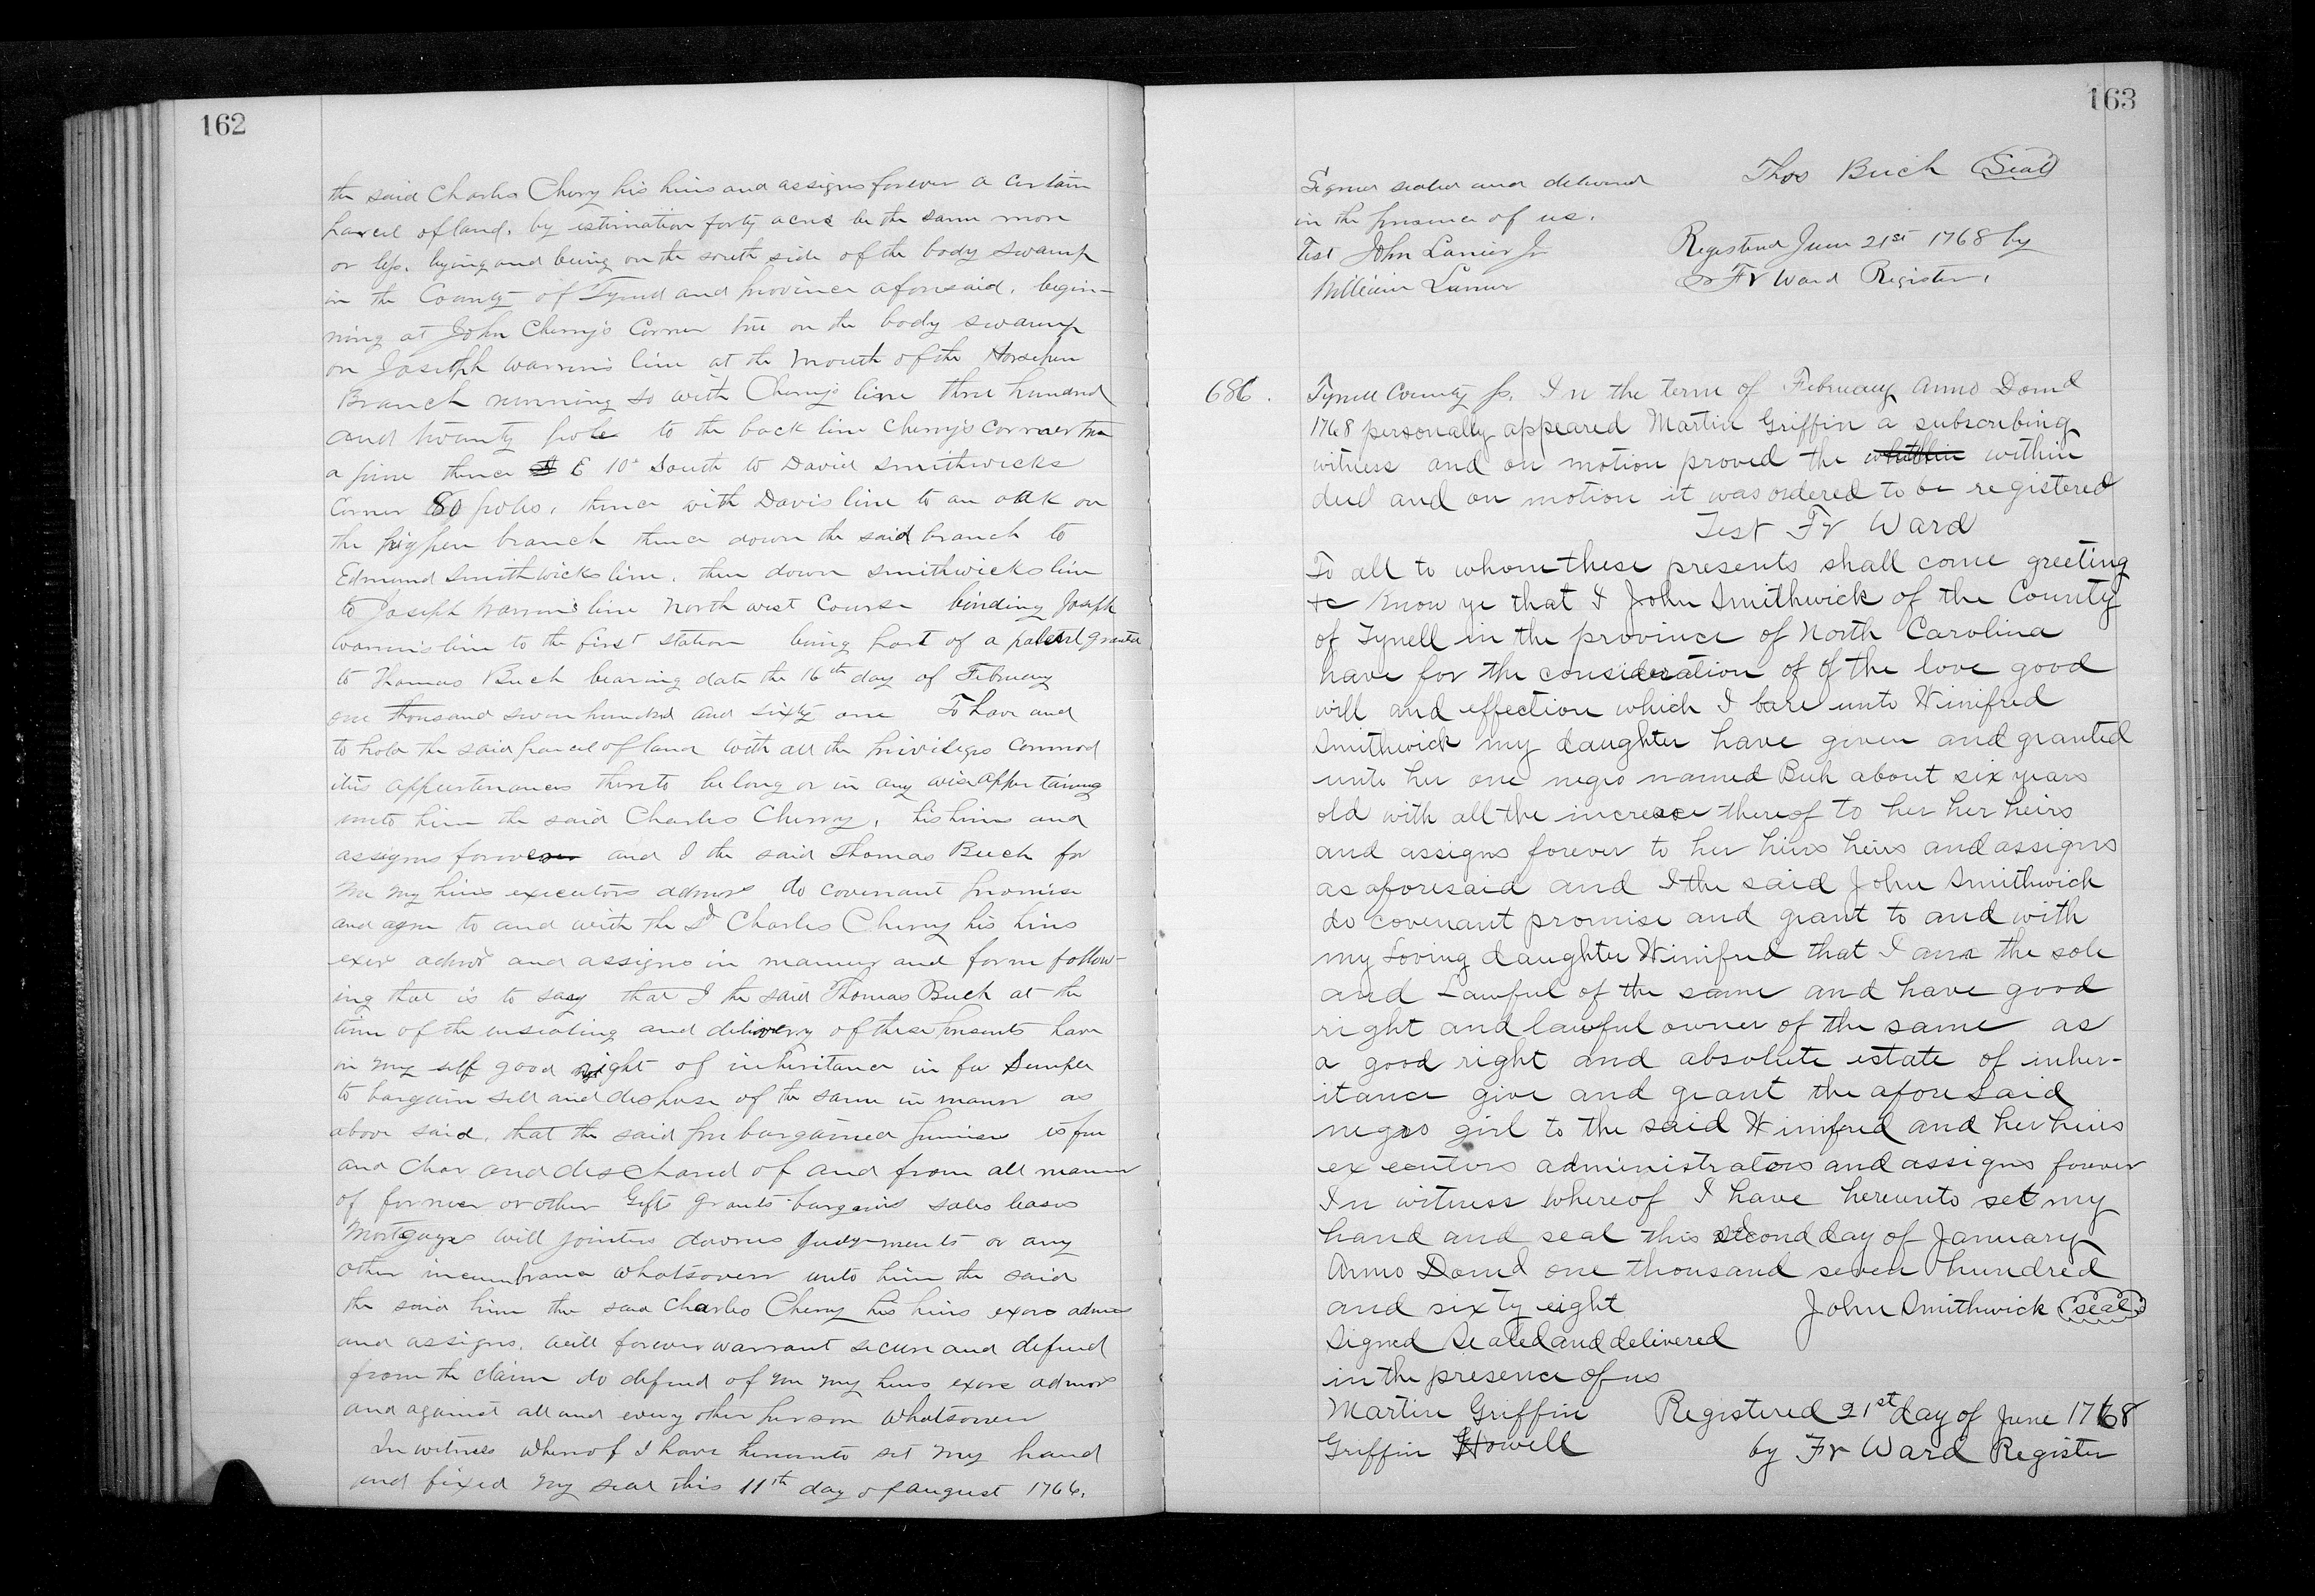 162
the said Charles Cherry his hiers and assigns forever a certain
parcel of land, by estimation forty acres be the same more
or less, lying and being on the south side of the body swamp
in the County of Tyrrel and province aforesaid, begin-
ning at John Cherry's Corner tree on the body swamp
on Joseph warrins line at the mouth of the Horsepen
Branch running so with Cherrys line three hundred
and twenty pole to the back line Cherry's corner tree
a pine thence E 10° South to David Smithwicks
Corner 80 poles, thence with Davis line to an oak on
the pigpen branch thence down the said branch to
Edmund Smithwicks line, then down smithwicks line
to Joseph Warrins line North west Course binding Joseph
Warrins line to the first station being part of a patent granted
to Thomas Buch bearing date the 16th day of February
one thousand seven hundred and sixty one To have and
to hold the said parcel of land with all the privileges commod
ities appurtenances thereto belong or in any wise appertaining
unto him the said Charles Cherry, his hiers and
assigns forever and I the said Thomas Buch for
me my hiers executors admors do covenant promise
and agree to and with the Sd Charles Cherry his hiers
exer admors and assigns in manner and form follow-
ing that is to say that I the said Thomas Buch at the
time of the ensealing and delivery of these presents have
in my self good right of inheritance in fee Simple
to bargain sell and dispose of the same in manner as
above said, that the said pre bargained premises is free
and clear and discharged of and from all manner
of former or other Gifts grants bargains sales leases
Mortgages will jointers dowries judgments or any
other incumbrance whatsoever unto him the said
the said him the said Charles Cherry his hiers exors admrs
and assigns, will forever warrant secure and defend
from the claim do defend of me my hiers exors admors
and against all and every other person whatsoever
In witness whereof I have hereunto set my hand
and fixed my seal this 11th day of august 1766.
163
Thos Buch (Seal)
Signed sealed and delivered
in the presence of us.
Test John Lanier Jr
William Lanier
Registered June 21st 1768 by
Fr Ward Register.
686.
Tyrrell County ss. In the term of February anno Domd
1768 personally appeared Martin Griffin a subscribing
witness and on motion proved the within
deed and on motion it was ordered to be registered
Test Fr Ward
To all to whom these presents shall come greeting
&c Know ye that I John Smithwick of the County
of Tyrrell in the province of North Carolina
have for the consideration of of the love good
will and effection which I bare unto Winifred
Smithwick my daughter have given and granted
unto her one negro named Beck about six years
old with all the increase thereof to her her heirs
and assigns forever to her hiers heirs and assigns
as aforesaid and I the said John Smithwick
do covenant promise and grant to and with
my Loving daughter Winifred that I am the sole
and Lawful of the same and have good
right and lawful owner of the same as
a good right and absolute estate of inher-
itance give and grant the aforesaid
negro girl to the said Winifred and her heirs
executors administrators and assigns forever
In witness whereof I have hereunto set my
hand and seal this second day of January
Anno Domd one thousand seven hundred
and sixty eight
John Smithwick (seal)
Signed Sealed and delivered
in the presence of us
Martin Griffin
Griffin Howell
Registered 21st day of June 1768
by Fr Ward Register